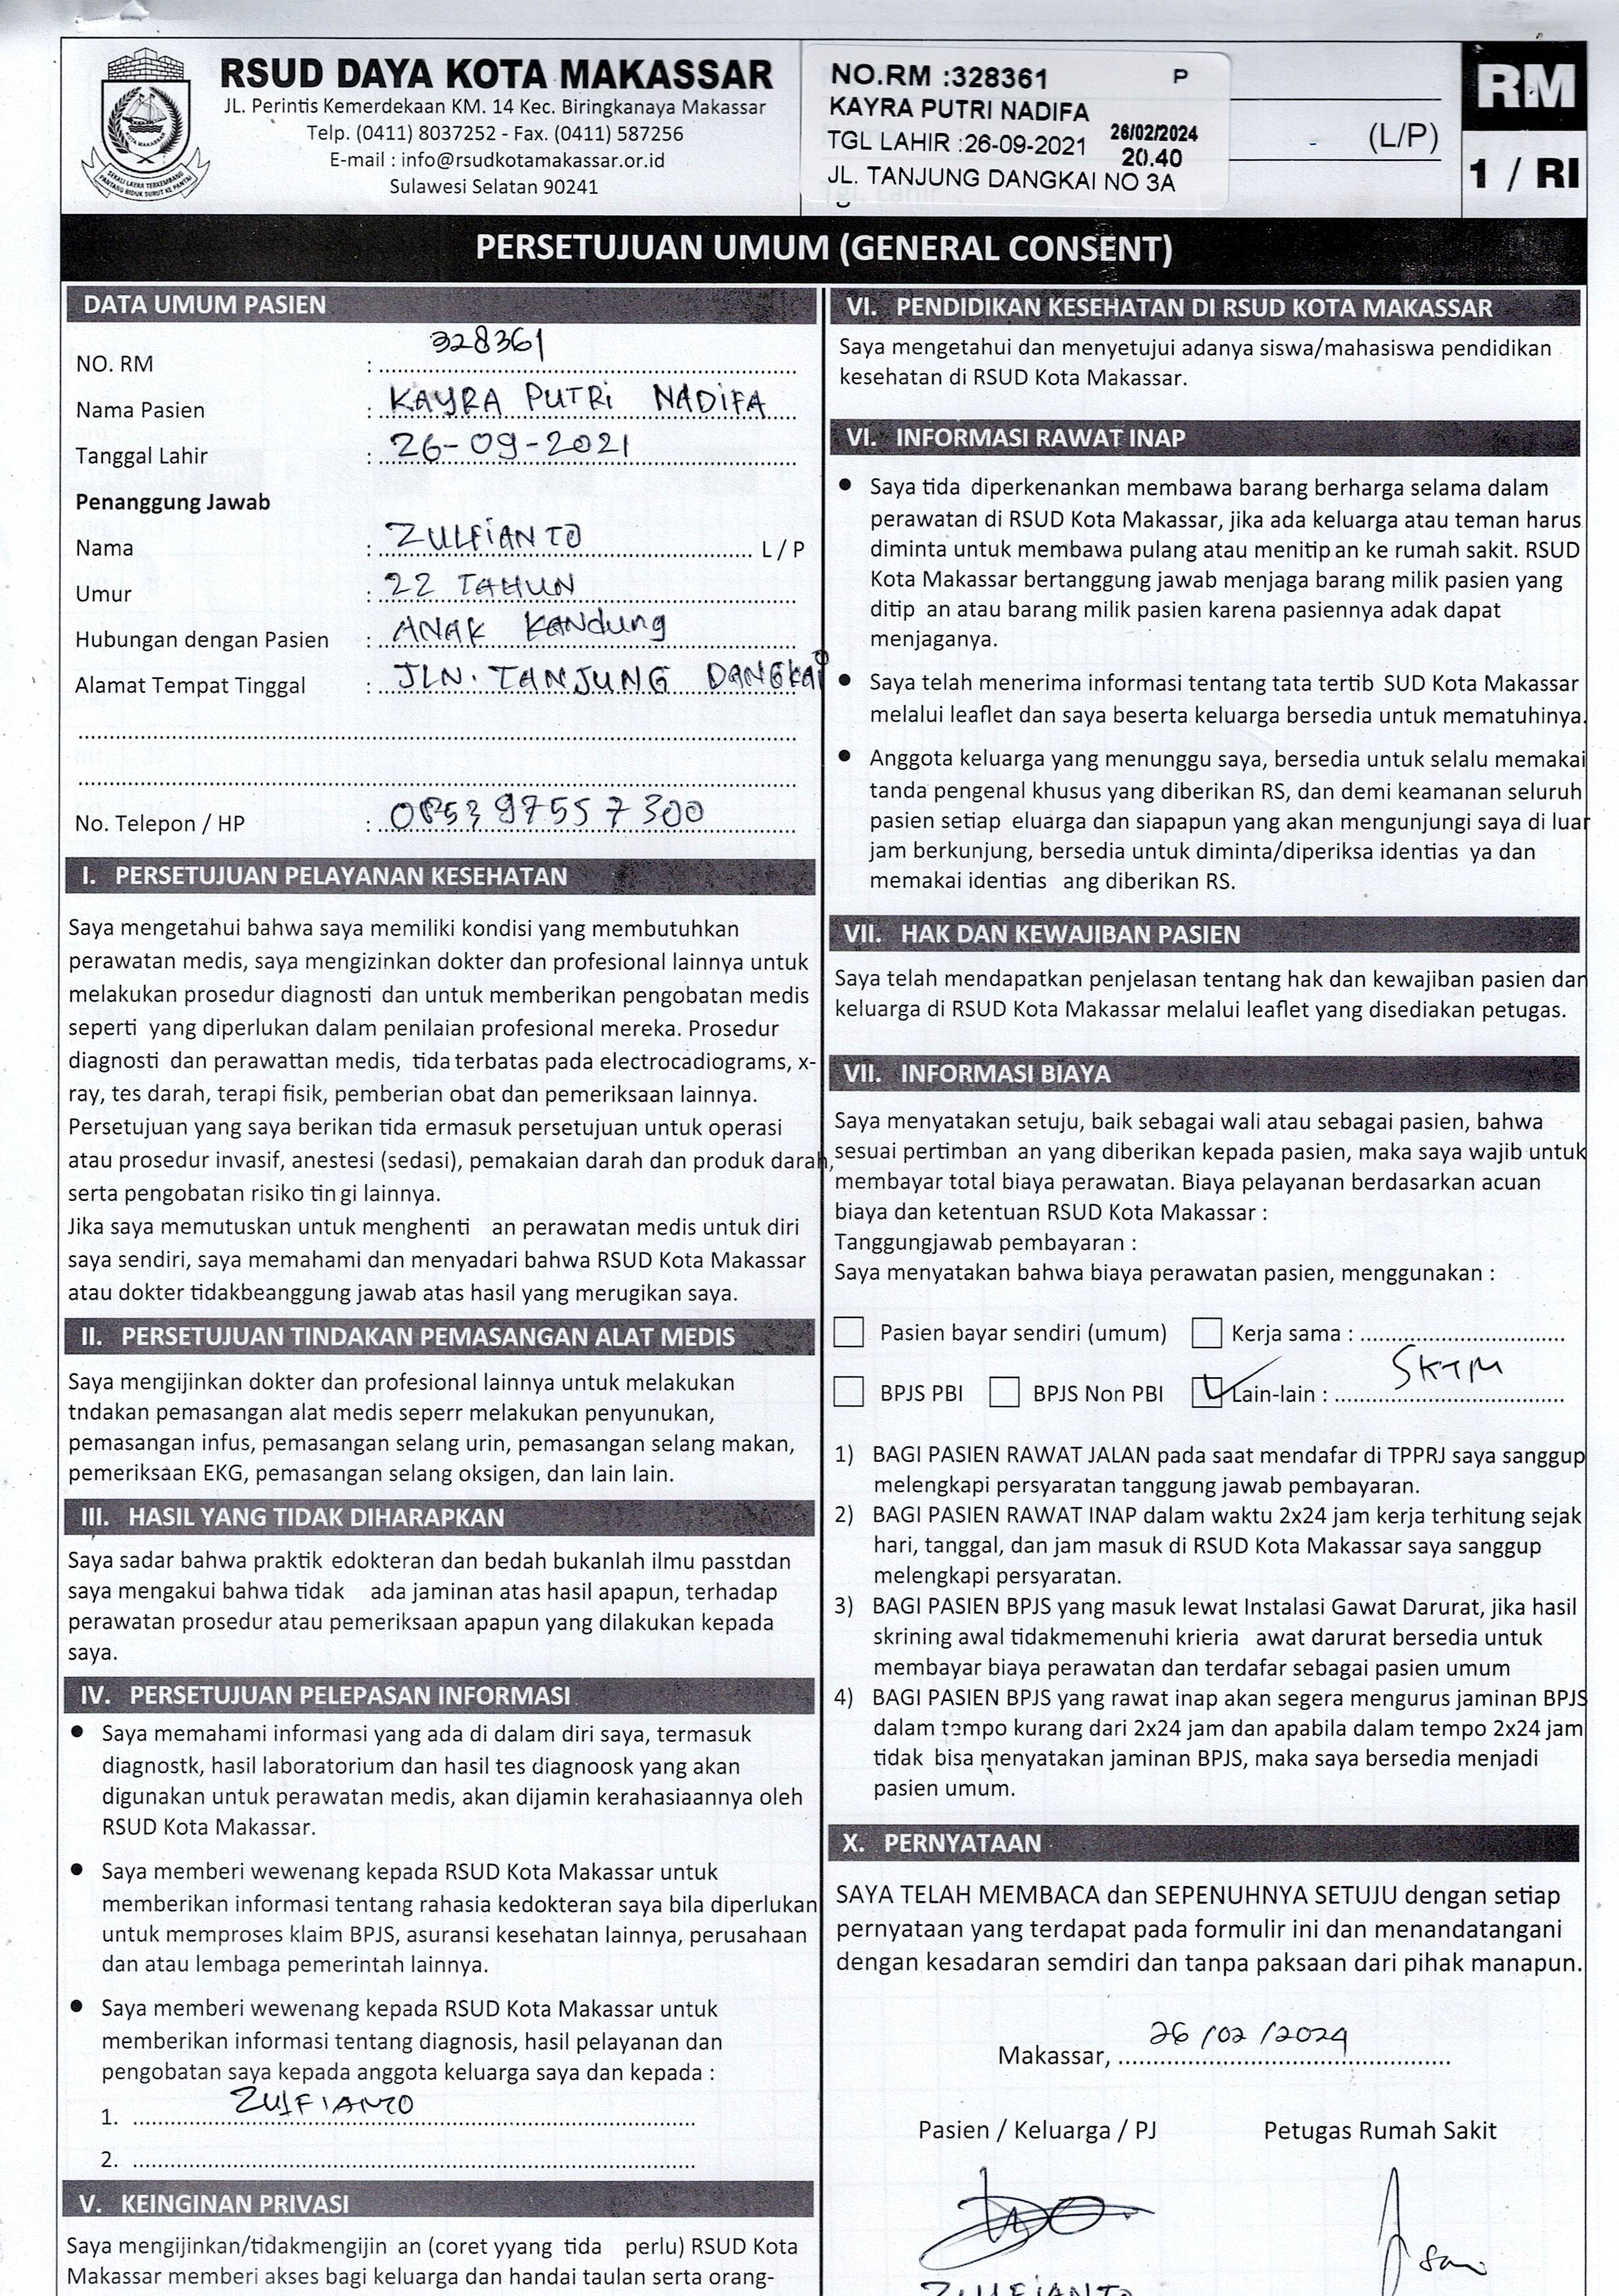 RSUD DAYA KOTA MAKASSAR
JL. Perintis Kemerdekaan KM. 14 Kec. Biringkanaya Makassar
Telp. (0411) 8037252 - Fax. (0411) 587256
E-mail : info@rsudkotamakassar.or.id
Sulawesi Selatan 90241
NO.RM :328361 P
KAYRA PUTRI NADIFA
TGL LAHIR :26-09-2021 26/02/2024
20.40
JL. TANJUNG DANGKAI NO 3A
(L/P)
RM
1 / RI
PERSETUJUAN UMUM (GENERAL CONSENT)
DATA UMUM PASIEN
NO. RM : 328361
Nama Pasien : KAYRA PUTRI NADIFA
Tanggal Lahir : 26-09-2021
Penanggung Jawab
Nama : ZULFIANTO L / P
Umur : 22 TAHUN
Hubungan dengan Pasien : ANAK KANDung
Alamat Tempat Tinggal : JLN. TANJUNG DANGKAI
No. Telepon / HP : 085397557300
I. PERSETUJUAN PELAYANAN KESEHATAN
Saya mengetahui bahwa saya memiliki kondisi yang membutuhkan
perawatan medis, saya mengizinkan dokter dan profesional lainnya untuk
melakukan prosedur diagnosti dan untuk memberikan pengobatan medis
seperti yang diperlukan dalam penilaian profesional mereka. Prosedur
diagnosti dan perawattan medis, tida terbatas pada electrocadiograms, x-
ray, tes darah, terapi fisik, pemberian obat dan pemeriksaan lainnya.
Persetujuan yang saya berikan tida ermasuk persetujuan untuk operasi
atau prosedur invasif, anestesi (sedasi), pemakaian darah dan produk darah,
serta pengobatan risiko tin gi lainnya.
Jika saya memutuskan untuk menghenti an perawatan medis untuk diri
saya sendiri, saya memahami dan menyadari bahwa RSUD Kota Makassar
atau dokter tidakbeanggung jawab atas hasil yang merugikan saya.
II. PERSETUJUAN TINDAKAN PEMASANGAN ALAT MEDIS
Saya mengijinkan dokter dan profesional lainnya untuk melakukan
tndakan pemasangan alat medis seperr melakukan penyunukan,
pemasangan infus, pemasangan selang urin, pemasangan selang makan,
pemeriksaan EKG, pemasangan selang oksigen, dan lain lain.
III. HASIL YANG TIDAK DIHARAPKAN
Saya sadar bahwa praktik edokteran dan bedah bukanlah ilmu passtdan
saya mengakui bahwa tidak ada jaminan atas hasil apapun, terhadap
perawatan prosedur atau pemeriksaan apapun yang dilakukan kepada
saya.
IV. PERSETUJUAN PELEPASAN INFORMASI
● Saya memahami informasi yang ada di dalam diri saya, termasuk
diagnostk, hasil laboratorium dan hasil tes diagnoosk yang akan
digunakan untuk perawatan medis, akan dijamin kerahasiaannya oleh
RSUD Kota Makassar.
● Saya memberi wewenang kepada RSUD Kota Makassar untuk
memberikan informasi tentang rahasia kedokteran saya bila diperlukan
untuk memproses klaim BPJS, asuransi kesehatan lainnya, perusahaan
dan atau lembaga pemerintah lainnya.
● Saya memberi wewenang kepada RSUD Kota Makassar untuk
memberikan informasi tentang diagnosis, hasil pelayanan dan
pengobatan saya kepada anggota keluarga saya dan kepada :
1. ZULFIANTO
2.
V. KEINGINAN PRIVASI
Saya mengijinkan/tidakmengijin an (coret yyang tida perlu) RSUD Kota
Makassar memberi akses bagi keluarga dan handai taulan serta orang-
VI. PENDIDIKAN KESEHATAN DI RSUD KOTA MAKASSAR
Saya mengetahui dan menyetujui adanya siswa/mahasiswa pendidikan
kesehatan di RSUD Kota Makassar.
VI. INFORMASI RAWAT INAP
● Saya tida diperkenankan membawa barang berharga selama dalam
perawatan di RSUD Kota Makassar, jika ada keluarga atau teman harus
diminta untuk membawa pulang atau menitip an ke rumah sakit. RSUD
Kota Makassar bertanggung jawab menjaga barang milik pasien yang
ditip an atau barang milik pasien karena pasiennya adak dapat
menjaganya.
● Saya telah menerima informasi tentang tata tertib SUD Kota Makassar
melalui leaflet dan saya beserta keluarga bersedia untuk mematuhinya.
● Anggota keluarga yang menunggu saya, bersedia untuk selalu memakai
tanda pengenal khusus yang diberikan RS, dan demi keamanan seluruh
pasien setiap eluarga dan siapapun yang akan mengunjungi saya di luar
jam berkunjung, bersedia untuk diminta/diperiksa identias ya dan
memakai identias ang diberikan RS.
VII. HAK DAN KEWAJIBAN PASIEN
Saya telah mendapatkan penjelasan tentang hak dan kewajiban pasien dan
keluarga di RSUD Kota Makassar melalui leaflet yang disediakan petugas.
VII. INFORMASI BIAYA
Saya menyatakan setuju, baik sebagai wali atau sebagai pasien, bahwa
sesuai pertimban an yang diberikan kepada pasien, maka saya wajib untuk
membayar total biaya perawatan. Biaya pelayanan berdasarkan acuan
biaya dan ketentuan RSUD Kota Makassar :
Tanggungjawab pembayaran :
Saya menyatakan bahwa biaya perawatan pasien, menggunakan :
Pasien bayar sendiri (umum) Kerja sama :
BPJS PBI BPJS Non PBI Lain-lain : SKTM
1) BAGI PASIEN RAWAT JALAN pada saat mendafar di TPPRJ saya sanggup
melengkapi persyaratan tanggung jawab pembayaran.
2) BAGI PASIEN RAWAT INAP dalam waktu 2x24 jam kerja terhitung sejak
hari, tanggal, dan jam masuk di RSUD Kota Makassar saya sanggup
melengkapi persyaratan.
3) BAGI PASIEN BPJS yang masuk lewat Instalasi Gawat Darurat, jika hasil
skrining awal tidakmemenuhi krieria awat darurat bersedia untuk
membayar biaya perawatan dan terdafar sebagai pasien umum
4) BAGI PASIEN BPJS yang rawat inap akan segera mengurus jaminan BPJS
dalam tempo kurang dari 2x24 jam dan apabila dalam tempo 2x24 jam
tidak bisa menyatakan jaminan BPJS, maka saya bersedia menjadi
pasien umum.
X. PERNYATAAN
SAYA TELAH MEMBACA dan SEPENUHNYA SETUJU dengan setiap
pernyataan yang terdapat pada formulir ini dan menandatangani
dengan kesadaran semdiri dan tanpa paksaan dari pihak manapun.
Makassar, 26/02/2024
Pasien / Keluarga / PJ Petugas Rumah Sakit
ZULFIANTO